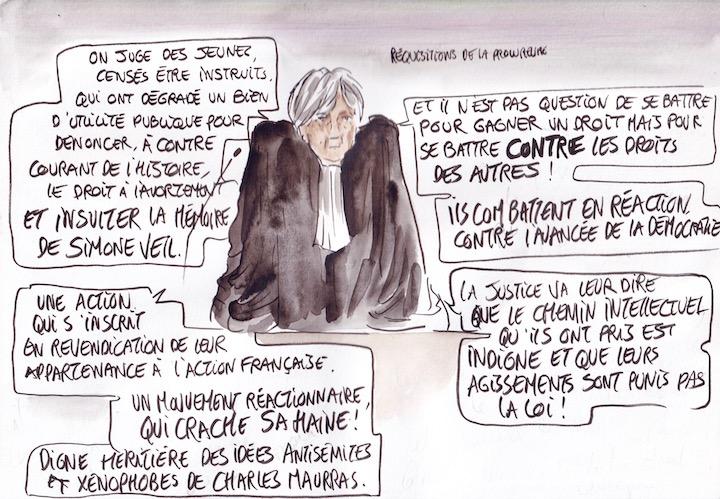 RÉQUISITIONS DE LA PROCUREURE
ON JUGE DES JEUNES,
CENSÉS ÊTRE INSTRUITS,
QUI ONT DÉGRADÉ UN BIEN
D'UTILITÉ PUBLIQUE POUR
DENONCER, À CONTRE
COURANT DE L'HISTOIRE,
LE DROIT À L'AVORTEMENT
ET INSULTER LA MÉMOIRE
DE SIMONE VEIL.
UNE ACTION
QUI S'INSCRIT
EN REVENDICATION DE LEUR
APPARTENANCE À L'ACTION FRANÇAISE.
UN MOUVEMENT RÉACTIONNAIRE,
QUI CRACHE SA HAINE !
DIGNE HÉRITIÈRE DES IDÉES ANTISÉMITES
ET XÉNOPHOBES DE CHARLES MAURRAS.
ET IL N'EST PAS QUESTION DE SE BATTRE
POUR GAGNER UN DROIT MAIS POUR
SE BATTRE CONTRE LES DROITS
DES AUTRES !
ILS COMBATTENT EN RÉACTION
CONTRE L'AVANCÉE DE LA DÉMOCRATIE
LA JUSTICE VA LEUR DIRE
QUE LE CHEMIN INTELLECTUEL
QU'ILS ONT PRIS EST
INDIGNE ET QUE LEURS
AGISSEMENTS SONT PUNIS PAS
LA LOI !